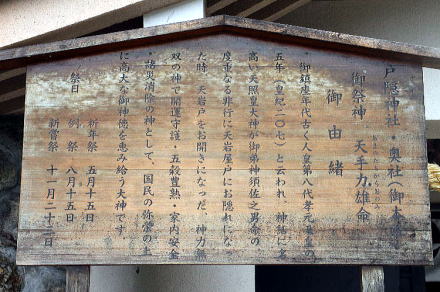 戸隠神社・奥社(御本社)
御祭神 天手力雄命
御由緒
・御鎮座年代古く人皇第八代孝元天皇の
五年(皇紀二〇七)と云われ、神話に名
高い天照皇大神が御弟神須佐之男命の
度重なる非行に天岩屋戸にお隠れになっ
た時、天岩戸をお開きになった、神力無
双の神で開運守護・五穀豊熟・家内安全
・諸災消除の神として、国民の弥栄の上
に高大な御神徳を恵み給う大神です。
祭日
祈年祭 五月十五日
例祭 八月十五日
新嘗祭 十一月二十三日